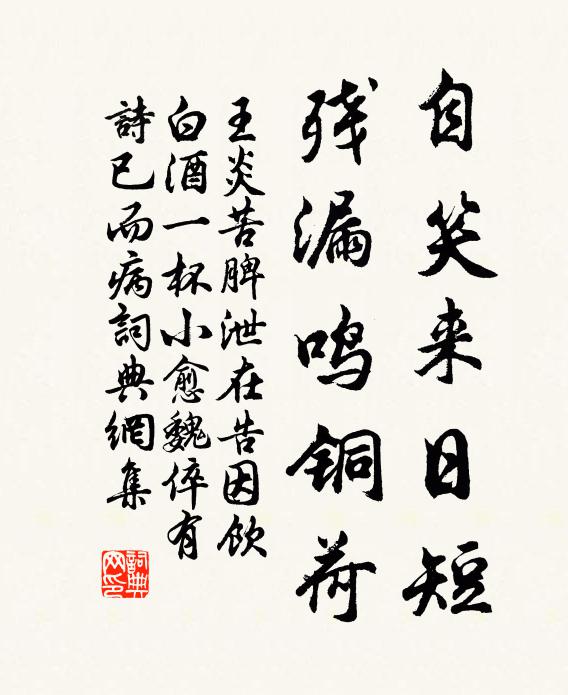 自笑来日短
残漏鸣铜荷
王炎苦脾泄在告因饮
白酒一杯小愈魏倅有
詩已而病詞典網集
詞典
网印